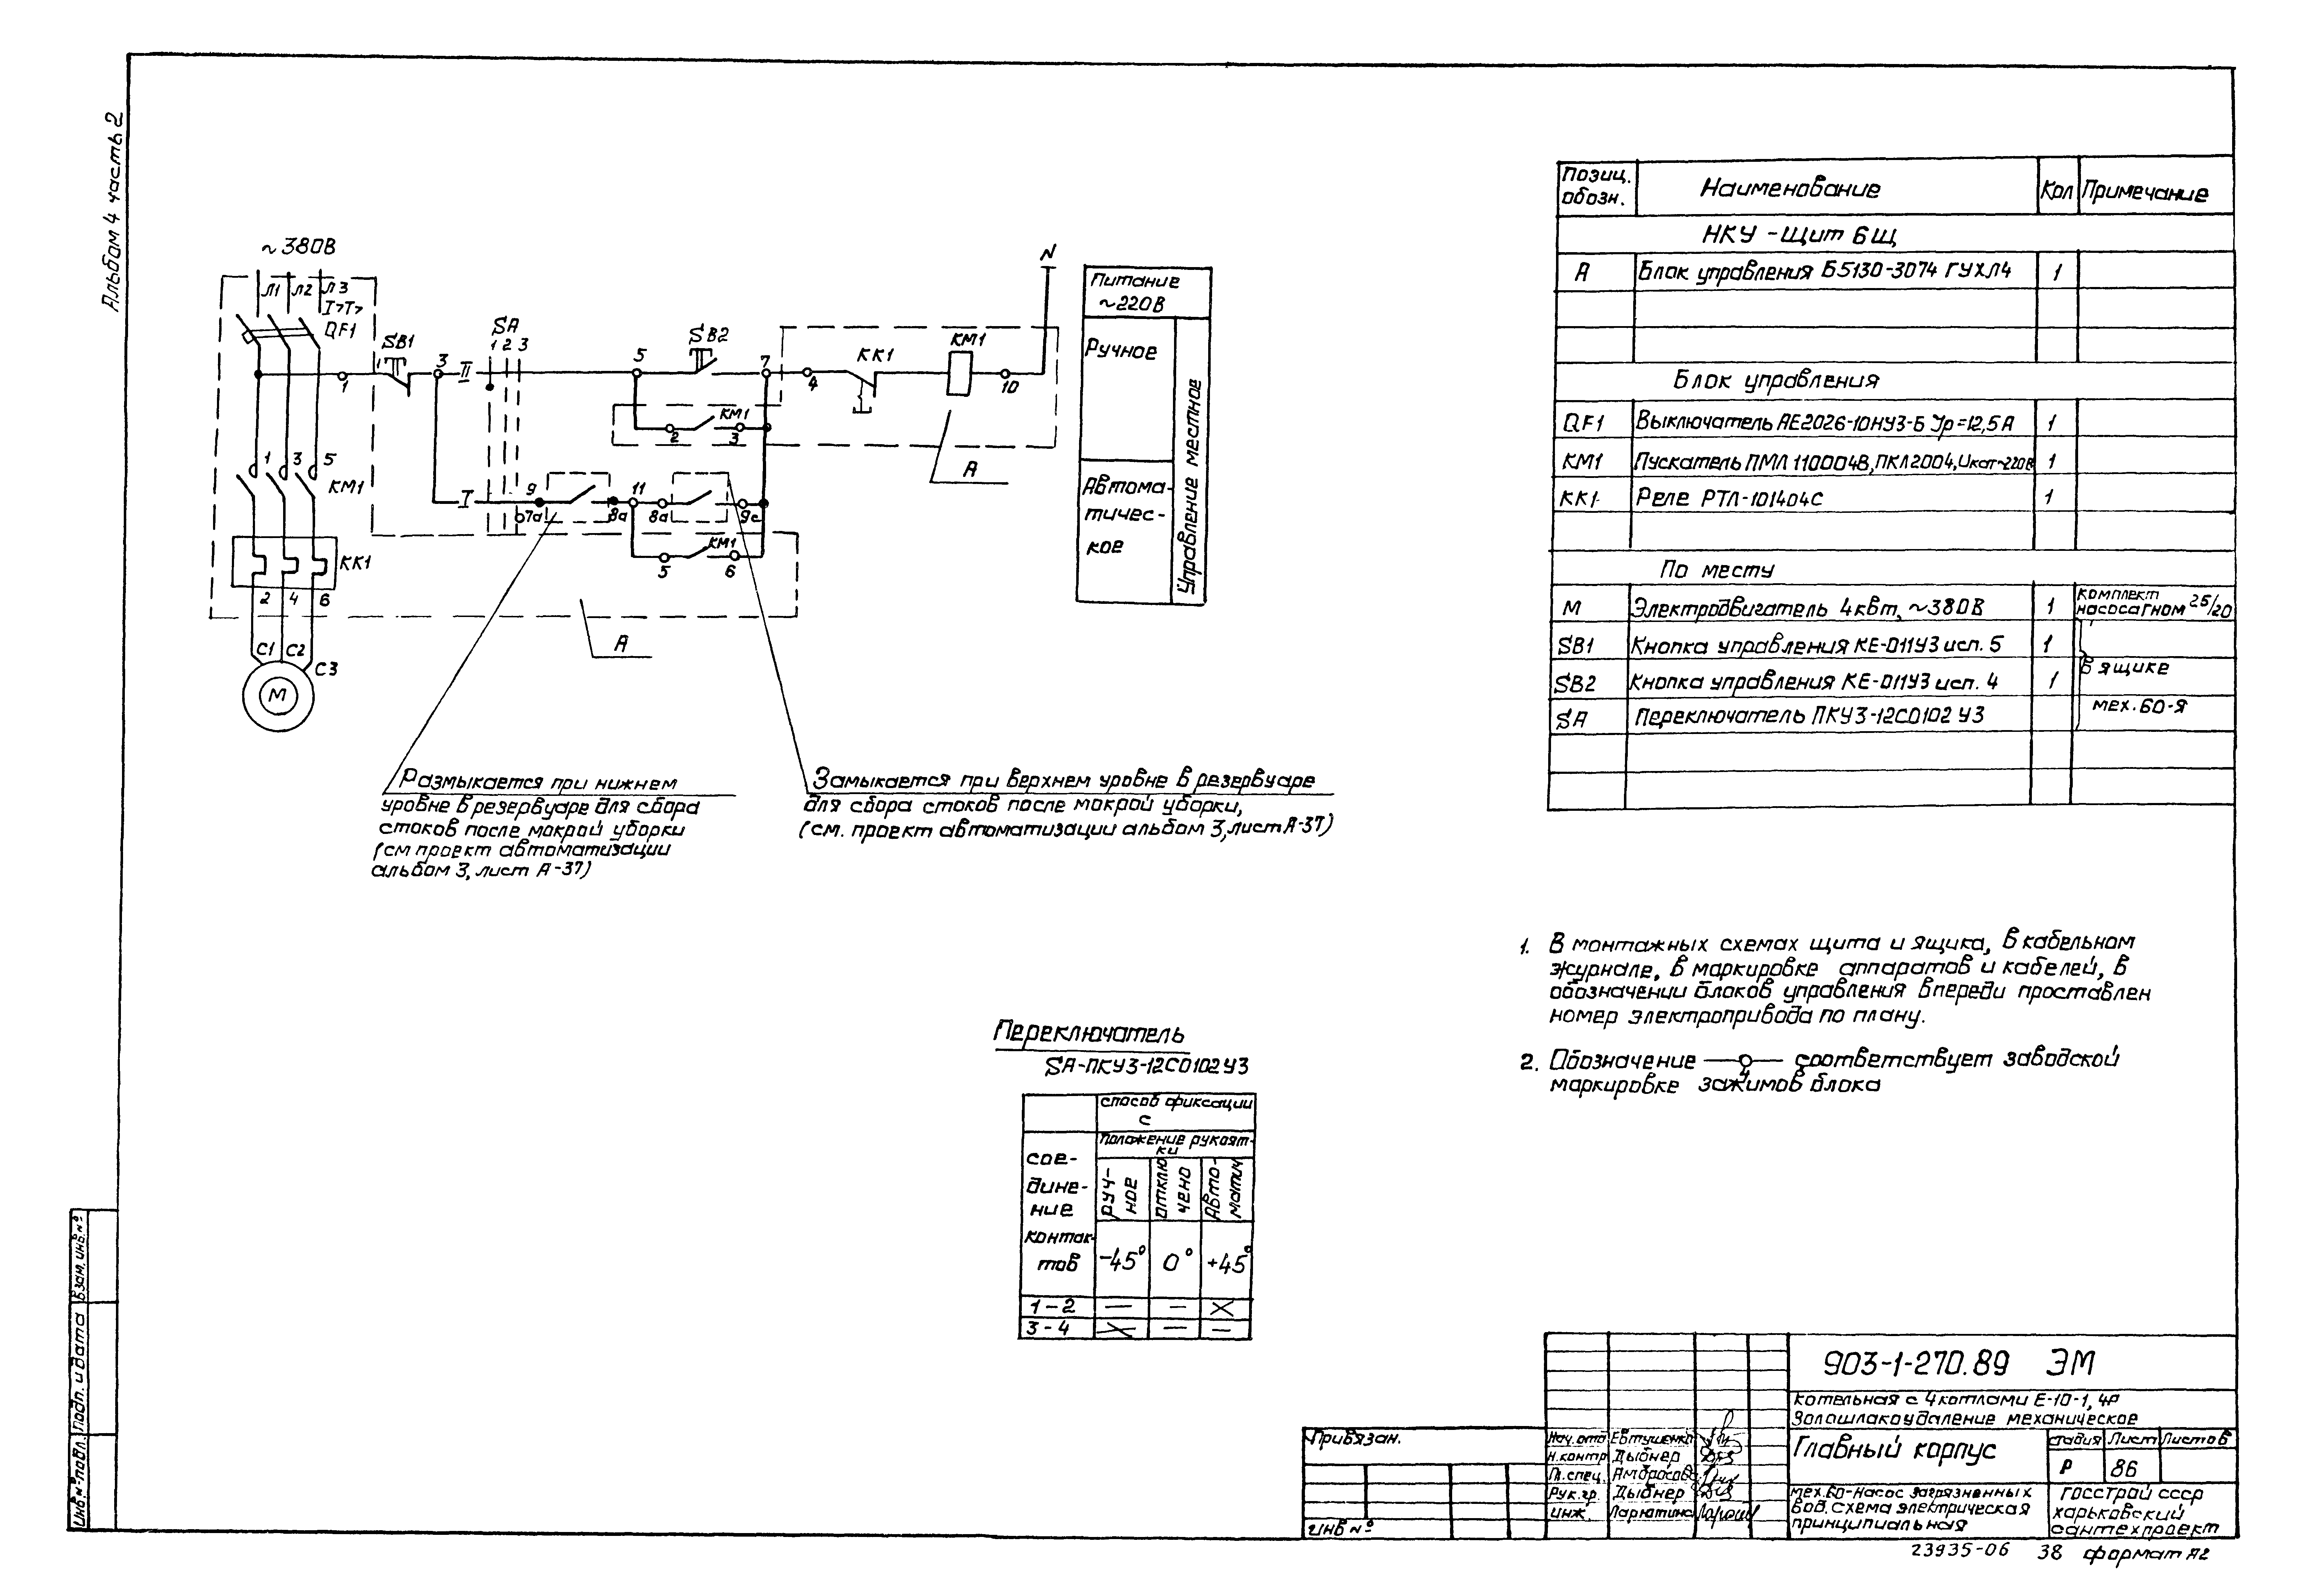 Альбом 4 часть 2
~380В
Л1 Л2 Л3
I> T>
QF1
SB1
SA
1 2 3
SB2
KK1
KM1
N
1
3
II
5
7
4
10
KM1
2
3
A
1 3 5
KM1
I
9
7а
8а
11
8а
9с
KM1
5
6
KK1
2 4 6
A
C1 C2 C3
M
Питание
~220В
Ручное
Автома-
тичес-
кое
Управление местное
Размыкается при нижнем
уровне в резервуаре для сбора
стоков после мокрой уборки
(см проект автоматизации
альбом 3, лист А-37)
Замыкается при верхнем уровне в резервуаре
для сбора стоков после мокрой уборки,
(см. проект автоматизации альбом 3, лист А-37)
Позиц. обозн.
Наименование
Кол
Примечание
НКУ - Щит 6Щ
А Блок управления Б5130-3074 ГУХЛ4 1
Блок управления
QF1 Выключатель АЕ2026-10НУЗ-Б Jр=12,5А 1
KM1 Пускатель ПМЛ 110004В, ПКЛ2004, Uкат~220В 1
KK1 Реле РТЛ-101404С 1
По месту
М Электродвигатель 4кВт, ~380В 1 комплект насоса ГНОМ 25/20
SB1 Кнопка управления КЕ-011У3 исп. 5 1
SB2 Кнопка управления КЕ-011У3 исп. 4 1
SA Переключатель ПКУ3-12С0102 У3
В ящике
мех. 60-Я
1. В монтажных схемах щита и ящика, в кабельном
журнале, в маркировке аппаратов и кабелей, в
обозначении блоков управления впереди проставлен
номер электропривода по плану.
2. Обозначение 4 соответствует заводской
маркировке зажимов блока
Переключатель
SA-ПКУ3-12С0102У3
способ фиксации
С
Положение рукоят-
ки
сое-
дине-
ние
контак-
тов
Руч-
ное
Отклю
чено
Авто-
матич
-45° 0° +45°
1-2 — — X
3-4 X — —
Взам. инв. №
Подп. и дата
Инв. № подл.
Привязан.
Инв №
Нач. отд Евтушенко
Н.контр Дыбнер
Гл. спец. Амбросова
Рук. гр. Дыбнер
Инж. Ларютина
903-1-270.89 ЭМ
Котельная с 4 котлами Е-10-1,4Р
Золошлакоудаление механическое
Главный корпус
стадия Лист Листов
Р 86
Мех. 60-Насос загрязненных
вод. схема электрическая
принципиальная
Госстрой СССР
Харьковский
сантехпроект
23935-06 38 формат А2